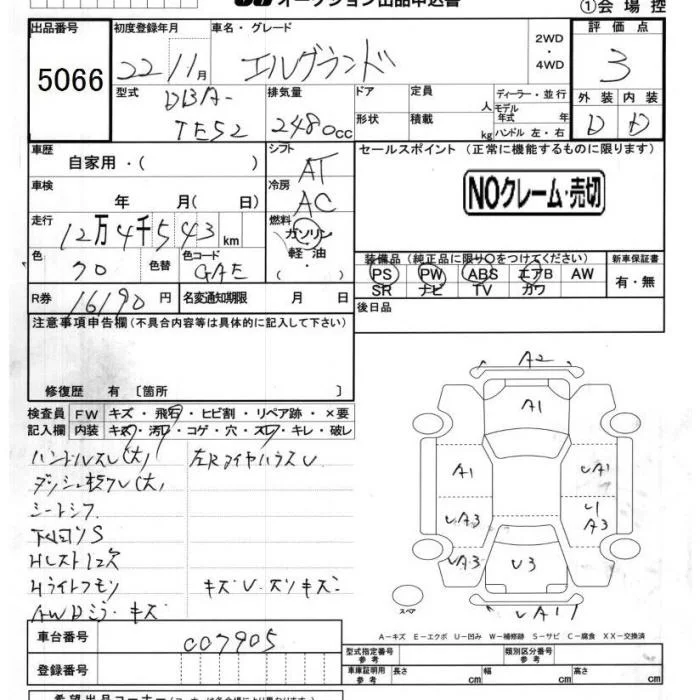 オークション出品申込書
①会場控
出品番号
5066
初度登録年月
22 11月
車名・グレード
エルグランド
2WD
・
4WD
評価点
3
外装 内装
D D
型式
DBA-
TE52
排気量
2480cc
ドア
形状
定員
人
積載
kg
ディーラー・並行
モデル
年式 年
ハンドル 左・右
車歴
自家用・( )
シフト
AT
車検
年 月( 日)
冷房
AC
走行
12万4千543km
燃料
ガソリン
軽油
・
( )
色
クロ
色替
色コード
GAE
R券
16190円
名変通知期限 月 日
セールスポイント (正常に機能するものに限ります)
NOクレーム・売切
装備品 (純正品に限り○をつけてください)
新車保証書
PS PW ABS エアB AW
SR ナビ TV カワ
有・無
後日品
注意事項申告欄(不具合内容等は具体的に記入して下さい)
修復歴 有〔箇所 〕
検査員
記入欄
FW キズ・飛石・ヒビ割・リペア跡・×要
内装 キズ・汚レ・コゲ・穴・スレ・キレ・破レ
ハンドルスレ(大)
シートシワ
下回りS
Hライトクモリ
キズU・スリキズ
A2
A1
A1
UA1
UA3
U
A3
UA3
U3
UA1
スペア
A-キズ E-エクボ U-凹み W-補修跡 S-サビ C-腐食 XX-交換済
車台番号
007905
登録番号
型式指定番号
参考
類別区分番号
参考
車庫証明用
参考
長さ cm
幅 cm
高さ cm
希望出品コーナー